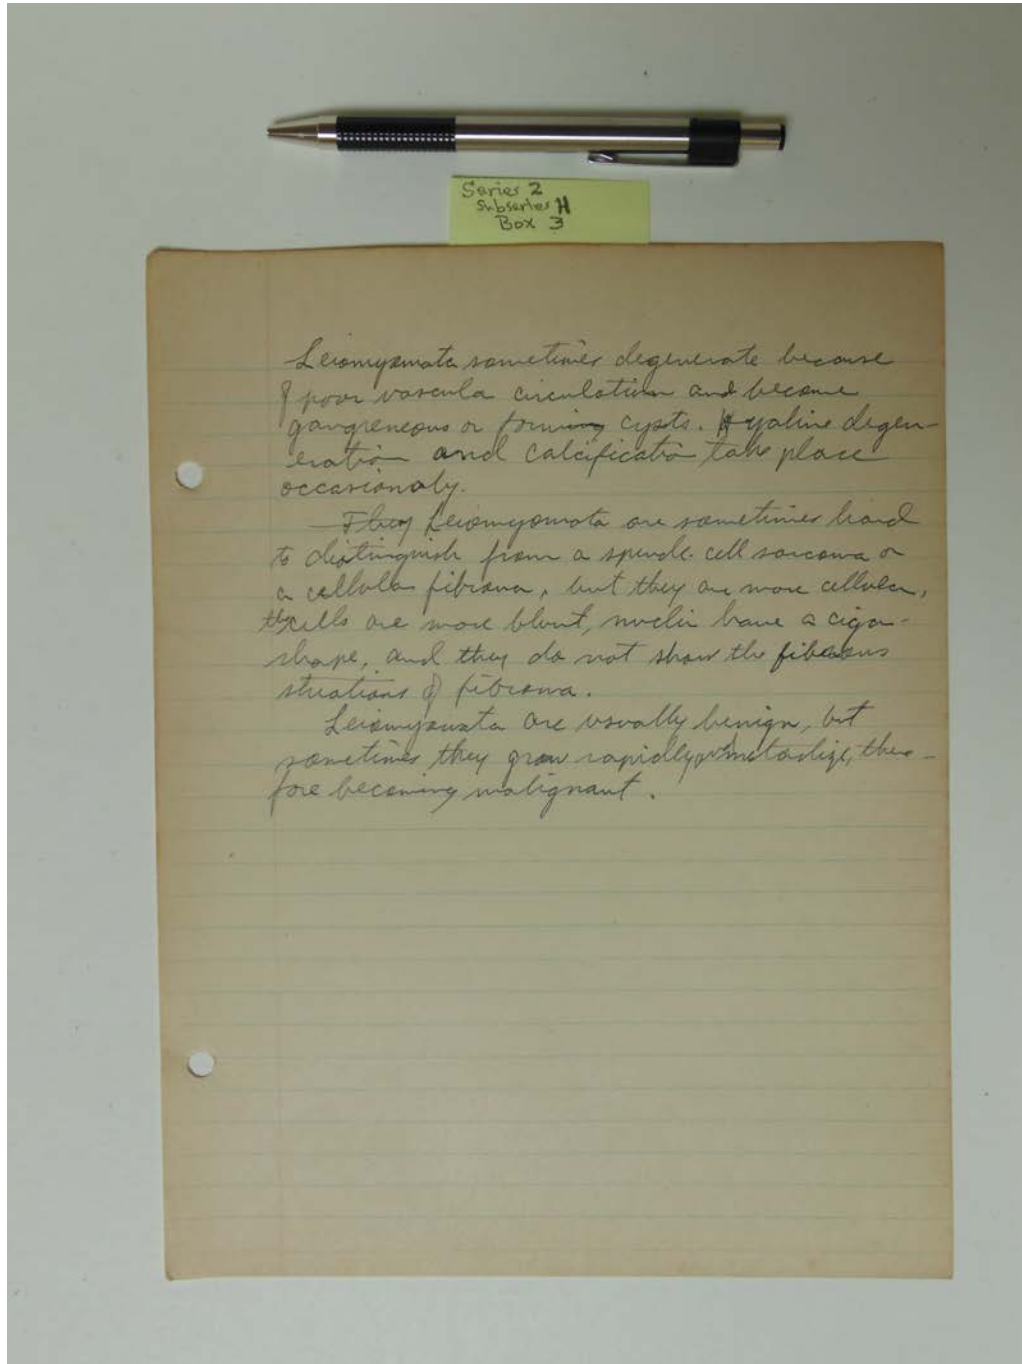 Series 2
Subseries H
Box 3
Leiomyomata sometimes degenerate because
of poor vascula circulation and become
gangreneous or forming cysts. Hyaline degen-
eration and calcification take place
occasionaly.
They Leiomyomata are sometimes hard
to distinguish from a spindle cell sarcoma or
a cellular fibroma, but they are more cellular,
the cells are more blunt, nuclei have a cigar-
shape, and they do not show the fibrous
striations of fibroma.
Leiomyomata are usually benign, but
sometimes they grow rapidly metastize, there-
fore becoming malignant.